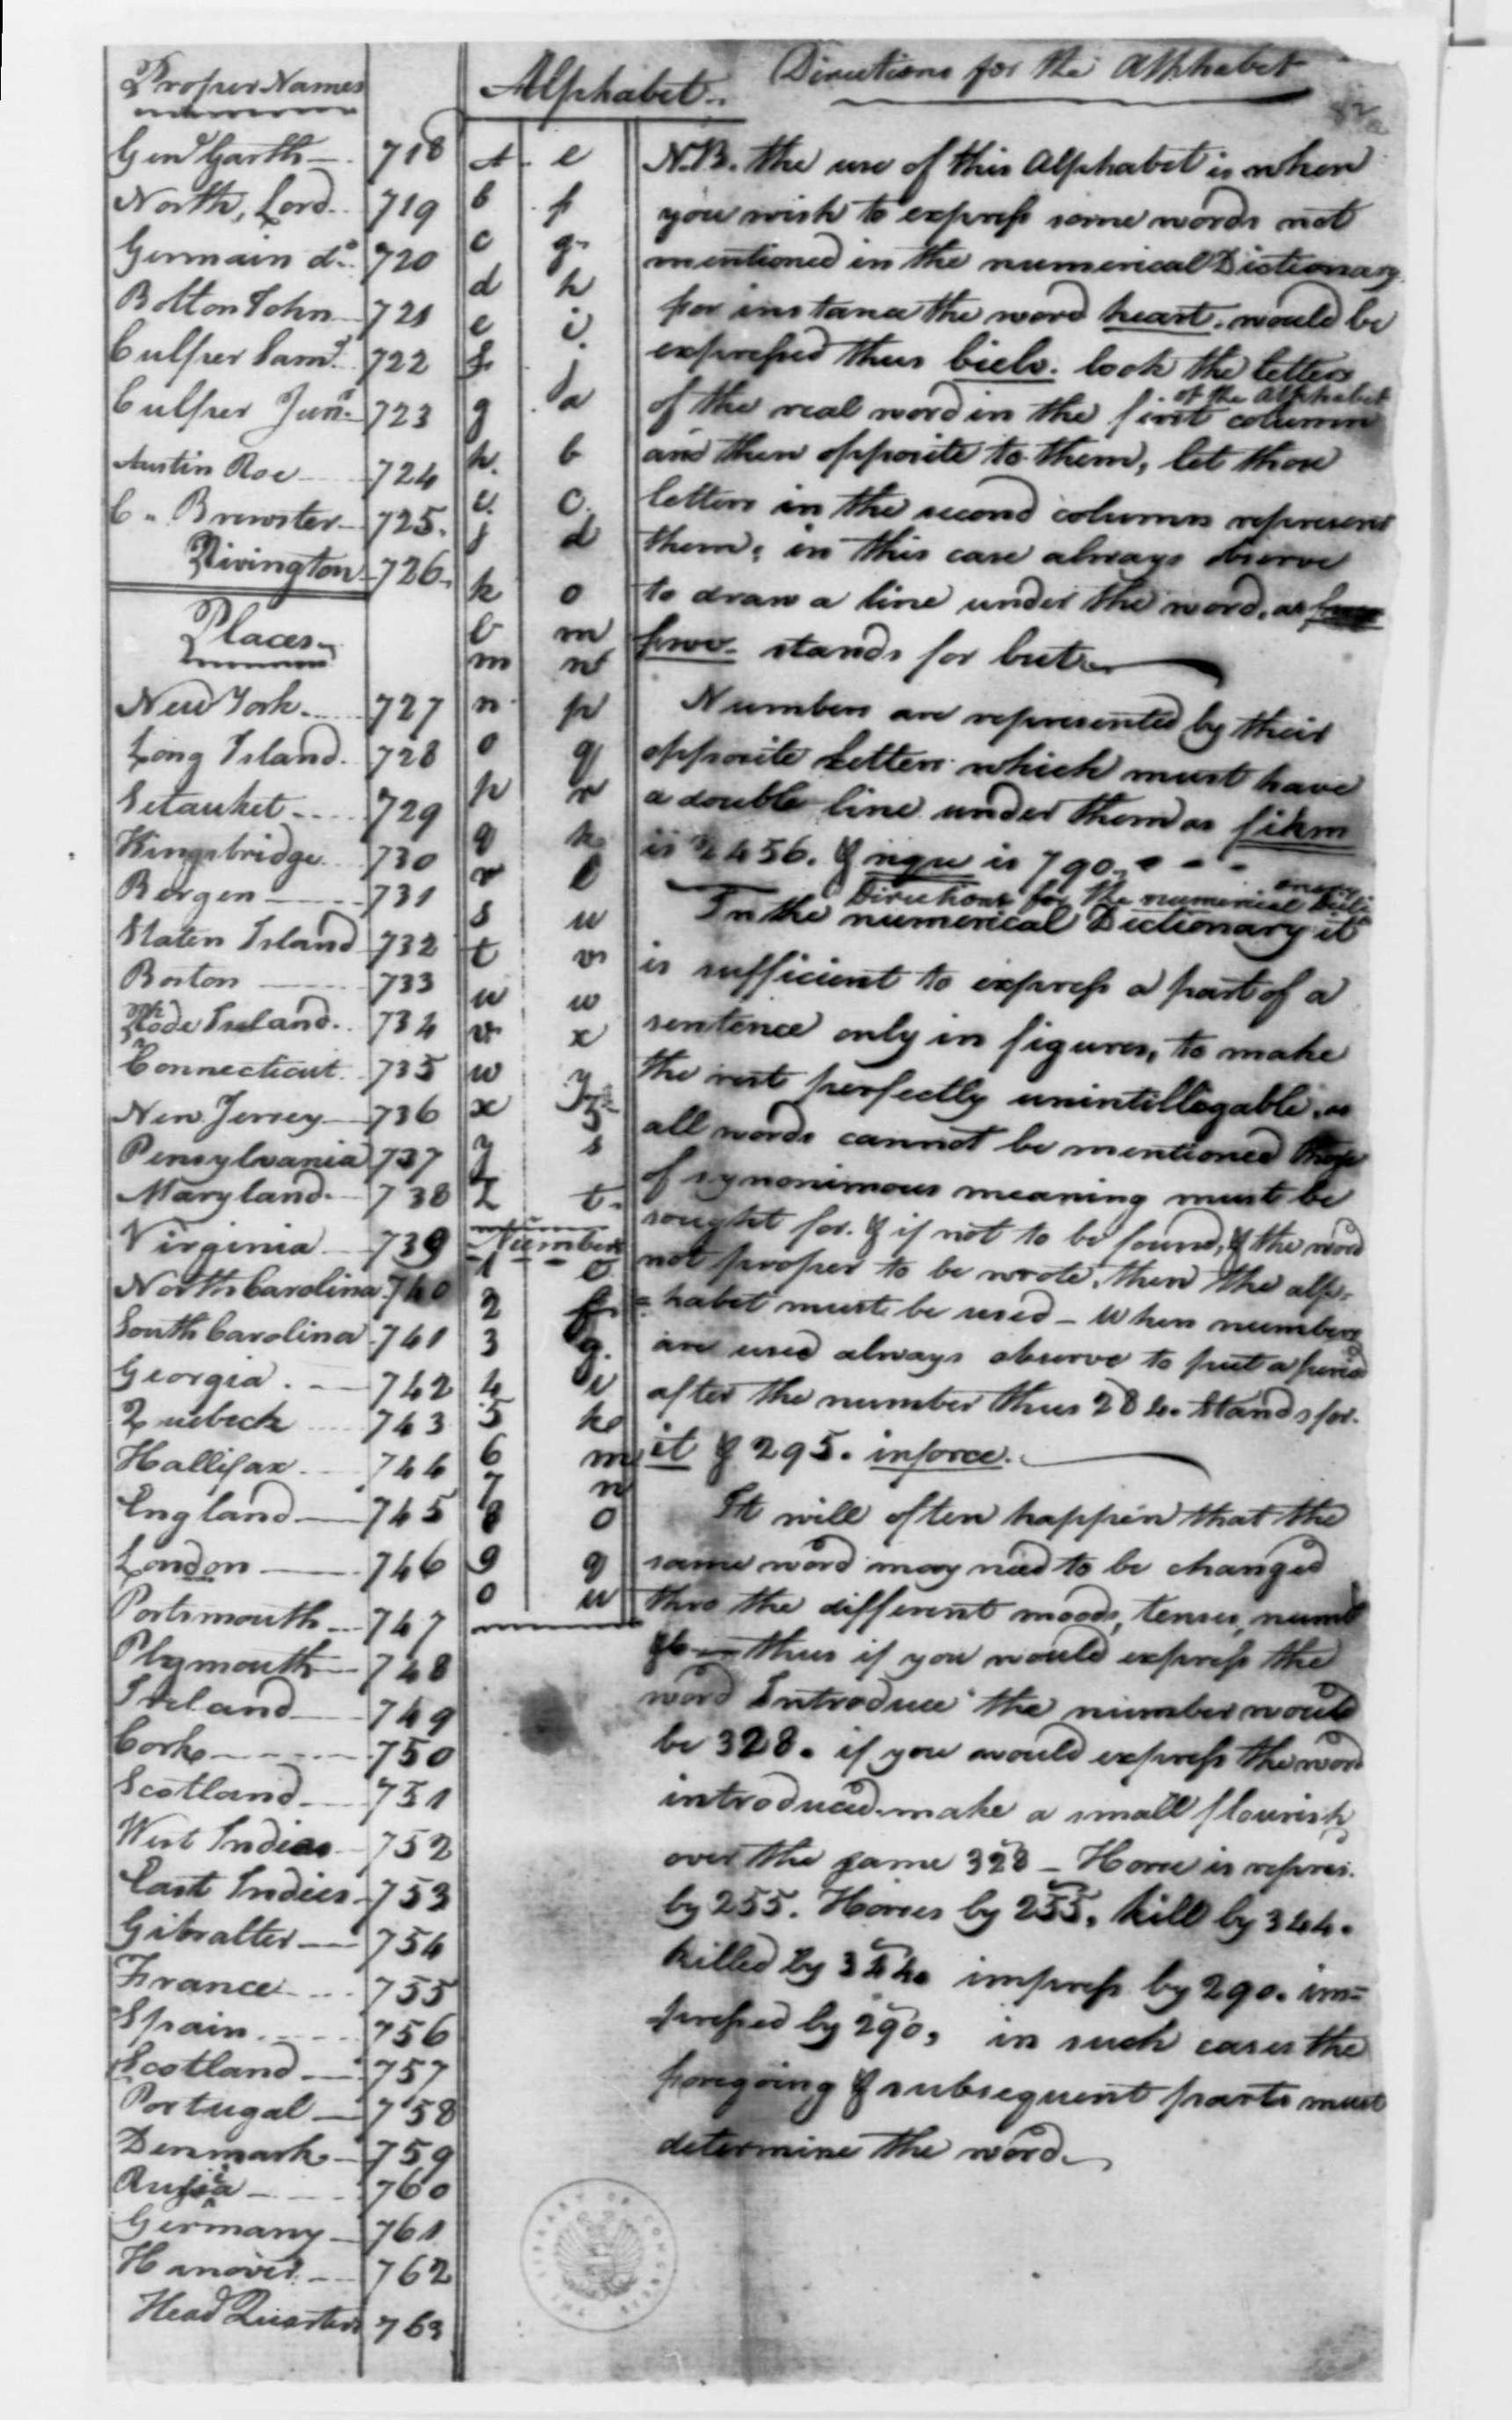 Proper Names
Gen.l Garth 718
North, Lord 719
Germain do. 720
Bolton John 721
Culper Sam.l 722
Culper Jun.r 723
Austin Roe 724
C. Brewster 725.
Rivington 726.
Places
New York 727
Long Island 728
Setauket 729
Kingsbridge 730
Bergen 731
Staten Island 732
Boston 733
Rhode Island 734
Connecticut 735
New Jersey 736
Pensylvania 737
Maryland 738
Virginia 739
North Carolina 740
South Carolina 741
Georgia 742
Quebeck 743
Hallifax 744
England 745
London 746
Portsmouth 747
Plymouth 748
Ireland 749
Corke 750
Scotland 751
West Indies 752
East Indies 753
Gibralter 754
France 755
Spain 756
Scotland 757
Portugal 758
Denmark 759
Russia 760
Germany 761
Hanover 762
Head Quarters 763
Alphabet
a e
b f
c g
d h
e i
f j
g a
h b
i c
j d
k o
l m
m n
n p
o q
p r
q k
r l
s u
t v
u w
v x
w y
x z
y s
z t
Numbers
1 e
2 f
3 g
4 i
5 k
6 m
7 n
8 o
9 q
0 u
Directions for the Alphabet
N.B. the use of this Alphabet is when
you wish to express some words not
mentioned in the numerical Dictionary
for instance the word heart. would be
expressed thus bielv. look the letters
of the real word in the first column of the Alphabet
and then opposite to them, let those
letters in the second column represent
them; in this case always observe
to draw a line under the word, as
fwv. stands for but
Numbers are represented by their
opposite letters which must have
a double line under them as fikm
is 2456. & nqu is 790.
Directions for the numerical
In the numerical Dictionary it
is sufficient to express a part of a
sentence only in figures, to make
the rest perfectly unintillegable, as
all words cannot be mentioned those
of synonimous meaning must be
sought for. & if not to be found, & the word
not proper to be wrote, then the alp=
=habet must be used – When numbers
are used always observe to put a period
after the number thus 284. stands for
it & 295. inforce.
It will often happen that the
same word may need to be changed
thro the different moods, tenses, numb
thus if you would express the
word Introduce the number would
be 328. if you would express the word
introduced make a small flourish
over the same 328 – Horse is repres.
by 255. Horses by 255, kill by 344.
killed by 344. impress by 290. im=
pressed by 290, in such cases the
foregoing & subsequent parts must
determine the word.
THE LIBRARY OF CONGRESS